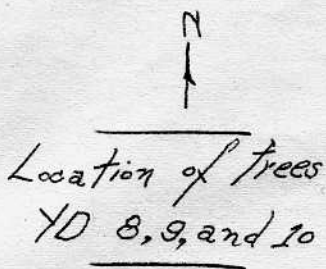 N
Location of trees
YD 8, 9, and 10